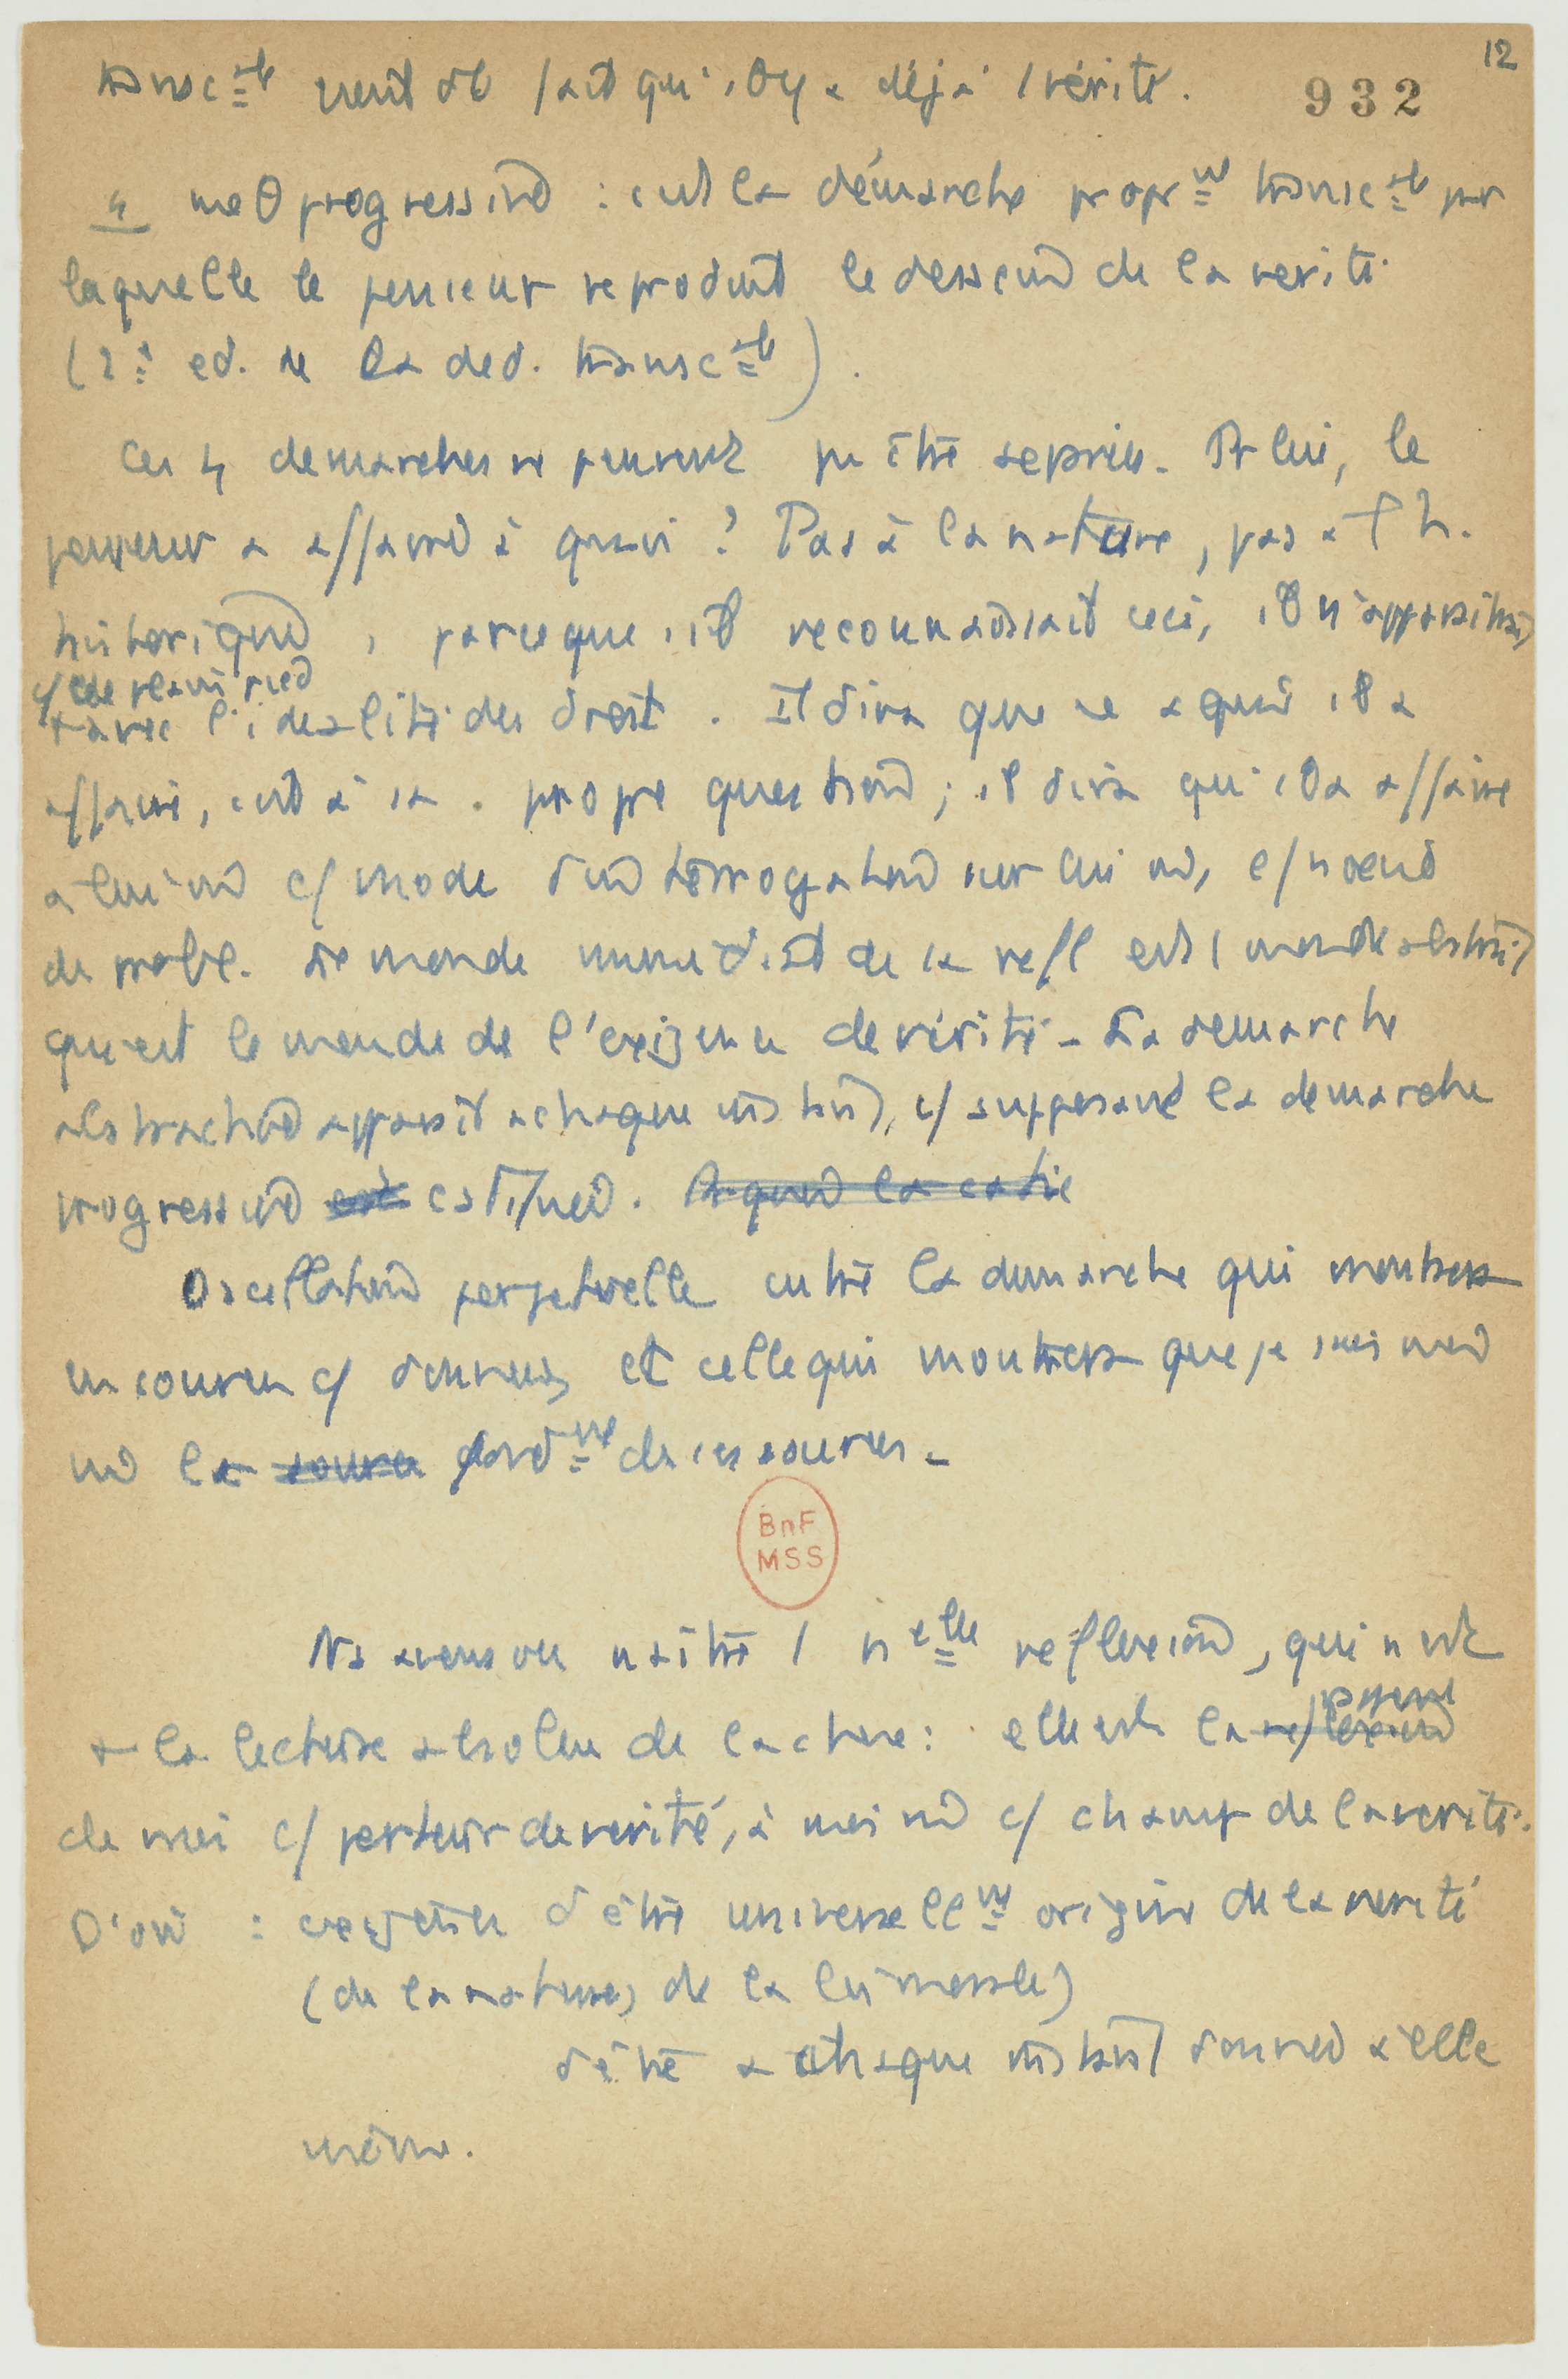 12
932
transc^al vient du fait qu'il y a déjà / vérité.
4 meθ progressive : c'est la démarche propr^mt transc^ale par
laquelle le penseur reproduit le dessein de la vérité
(2e ed. de la ded. transc^ale).
Ces 4 demarches ne peuvent pas être séparées. Pr lui, le
penseur a affaire à quoi ? Pas à la nature, pas à l'h.
historique, parce que s'il reconnaissait ceci, il n'apparaîtrait
c/
avec l'idéalité des droit. Il dira que ce à quoi il a
affaire, c'est à sa propre question ; il dira qu'il a affaire
à lui m̂ c/ mode d'interrogation sur lui m̂, c/ noeud
de probl. Le monde immédiat de sa refl est / monde abstrait
qu'est le monde de l'exigence de vérité - La demarche
abstraction apparaît à chaque instant, c/ supposant la demarche
progressive est continue. A quoi la
Oscillation perpetuelle entre la demarche qui montrera
en source c/ données, et celle qui montrera que je suis moi
m̂ la source fond^mt de ces sources -
BnF
MSS
Ns avons vu naître / n^elle reflexion, qui n'est
+ la lecture absolue de la chose : elle est la reflexion
de moi c/ porteur de vérité, à moi m̂ c/ champ de la vérité.
D'où : exigence d'être universell^mt origine de la verité
(de la nature, de la loi morale)
d'être à chaque instant donnée à elle
même.